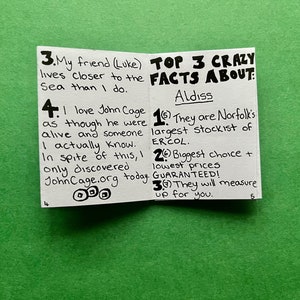 3. My friend (Luke)
lives closer to the
sea than I do.
4. I love John Cage
as though he were
alive and someone
I actually know.
In spite of this, I
only discovered
JohnCage.org today.
4
TOP 3 CRAZY
FACTS ABOUT:
Aldiss
1(5) They are Norfolk's
largest stockist of
ERCOL.
2(6) Biggest choice +
lowest prices
GUARANTEED!
3(7) They will measure
up for you.
5